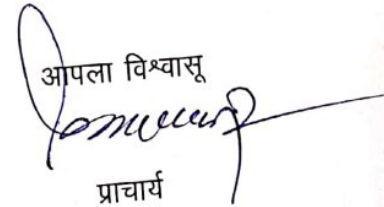 आपला विश्वासू
प्राचार्य